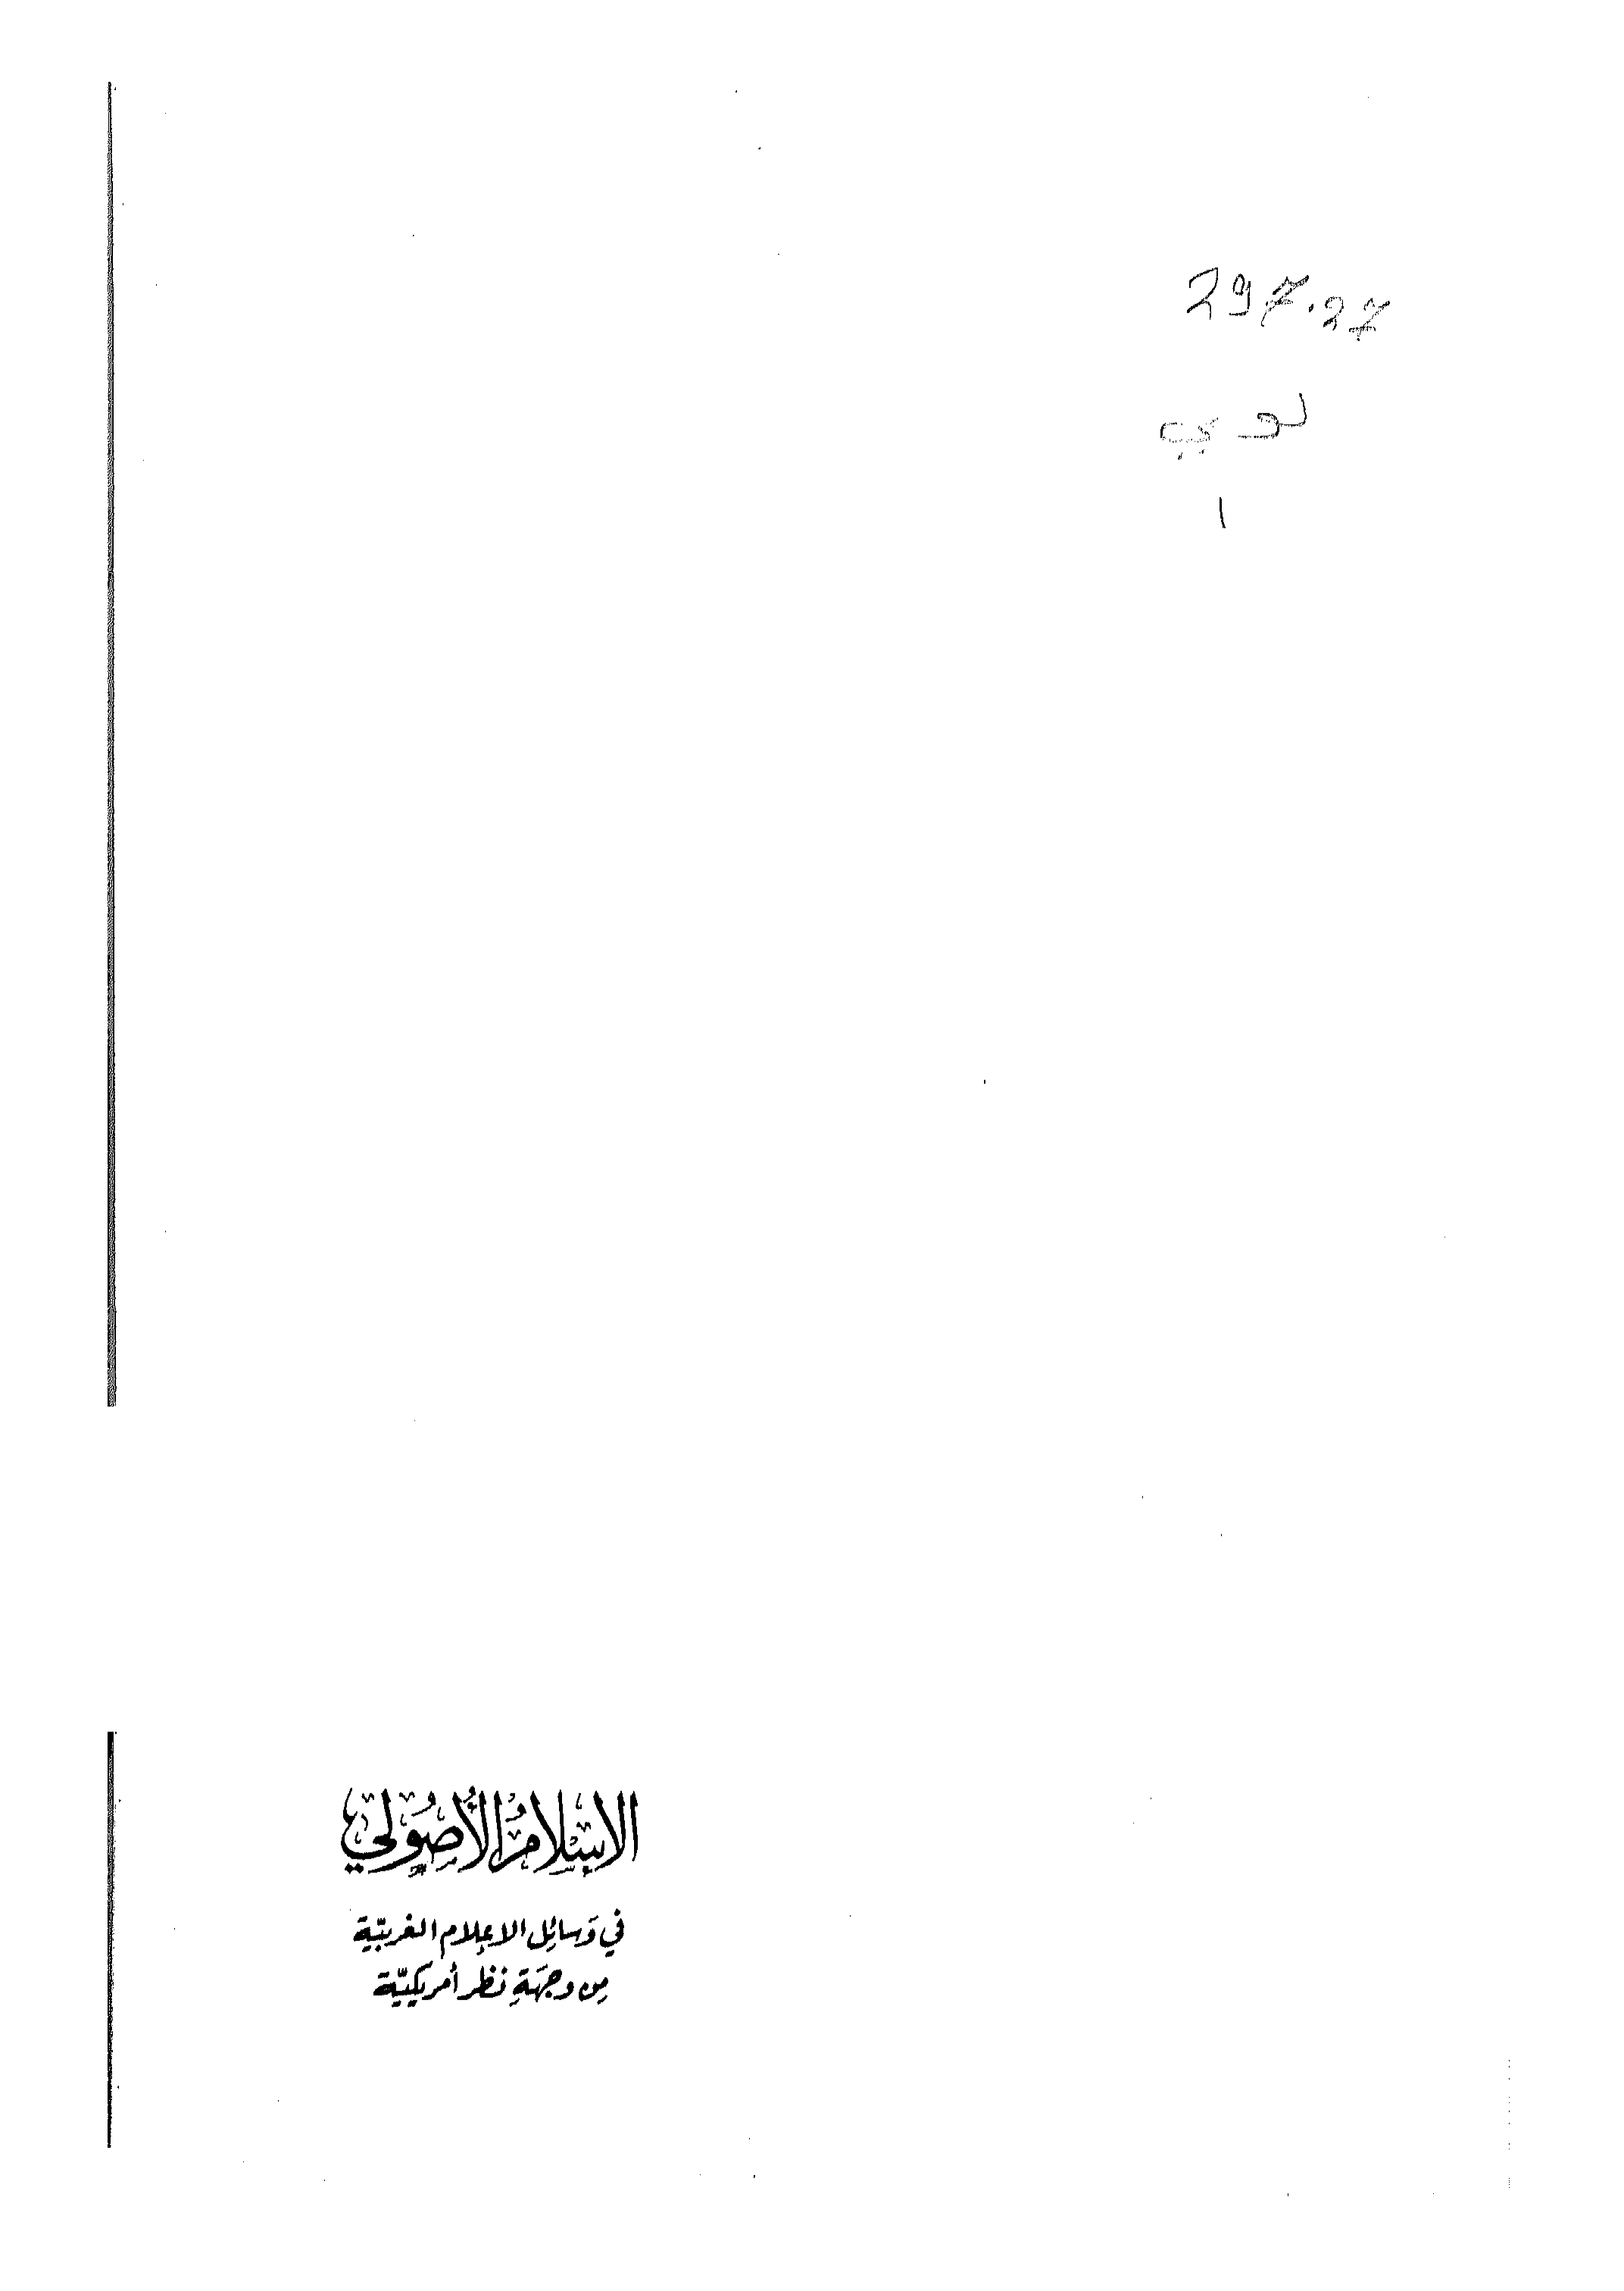 297.27
لوي
١
الإسلام الأصولي
في وسائل الإعلام الغربيّة
من وجهة نظر أمريكيّة